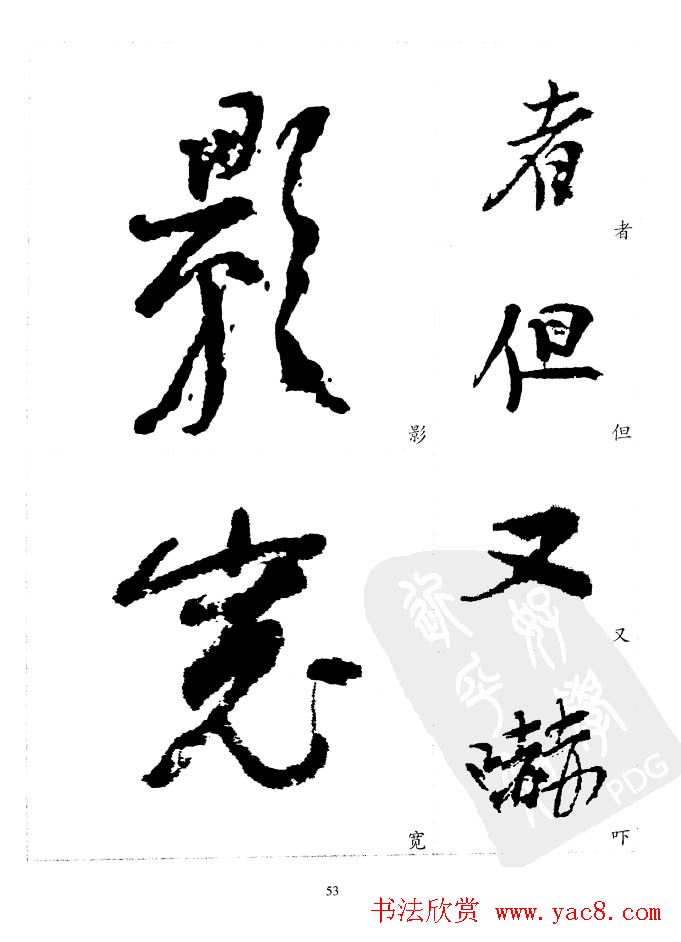 者
者
但
但
又
又
嚇
吓
影
影
寬
宽
PDG
53
书法欣赏 www.yac8.com